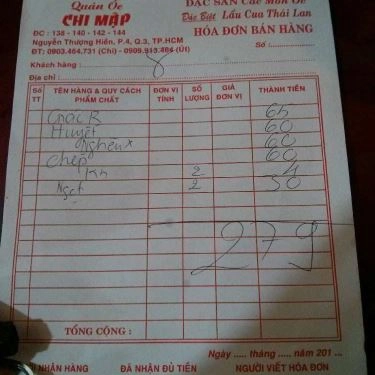 Quán Ốc
CHỊ MẬP
ĐC : 138 - 140 - 142 - 144
Nguyễn Thượng Hiền, P.4, Q.3, TP.HCM
ĐT: 0903.464.731 (Chi) - 0909.913.464 (Út)
ĐẶC SẢN Các Món Ốc
Đặc Biệt Lẩu Cua Thái Lan
HÓA ĐƠN BÁN HÀNG
Số :
Khách hàng : 8
Địa chỉ :
Số TT TÊN HÀNG & QUY CÁCH PHẨM CHẤT ĐƠN VỊ TÍNH SỐ LƯỢNG GIÁ ĐƠN VỊ THÀNH TIỀN
65
Huyết 60
Nghêu x 60
Chép 60
Kh 2 4
Ngọt 2 30
279
TỔNG CỘNG :
Ngày ..... tháng ..... năm 201 ...
NHẬN HÀNG ĐÃ NHẬN ĐỦ TIỀN NGƯỜI VIẾT HÓA ĐƠN